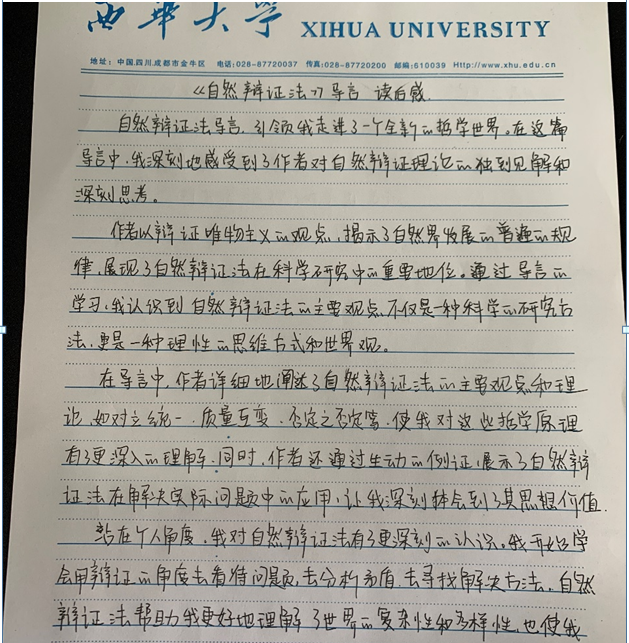 西华大学 XIHUA UNIVERSITY
地址：中国.四川.成都市金牛区 电话:028-87720037 传真:028-87720200 邮编:610039 Http://www.xhu.edu.cn
《自然辩证法》导言 读后感.
自然辩证法导言，引领我走进了一个全新的哲学世界。在这篇
导言中，我深刻地感受到了作者对自然辩证理论的独到见解和
深刻思考。
作者以辩证唯物主义的观点，揭示了自然界发展的普遍的规
律，展现了自然辩证法在科学研究中的重要地位。通过导言的
学习，我认识到自然辩证法的主要观点不仅是一种科学的研究方
法，更是一种理性的思维方式和世界观。
在导言中，作者详细地阐述了自然辩证法的主要观点和理
论，如对立统一、质量互变、否定之否定等，使我对这些哲学原理
有了更深入的理解，同时，作者还通过生动的例证，展示了自然辩
证法在解决实际问题中的应用，让我深刻体会到了其思想价值.
站在个人角度，我对自然辩证法有了更深刻的认识。我开始学
会用辩证的角度去看待问题，去分析矛盾，去寻找解决方法。自然
辩证法帮助我更好地理解了世界的复杂性和多样性，也使我